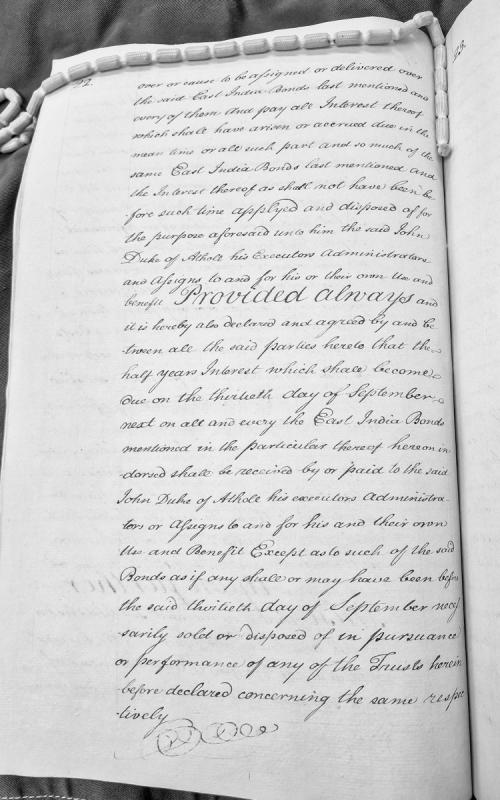 22.
over or cause to be assigned or delivered over
the said East India Bonds last mentioned and
every of them And pay all Interest thereof
which shall have arisen or accrued due in the
mean time or all such part and so much of the
same East India Bonds last mentioned and
the Interest thereof as shall not have been be-
fore such time applyed and disposed of for
the purpose aforesaid unto him the said John
Duke of Atholl his Executors Administrators
and Assigns to and for his or their own Use and
benefit Provided always and
it is hereby also declared and agreed by and be
tween all the said parties hereto that the
half years Interest which shall become
due on the thirtieth day of September
next on all and every the East India Bonds
mentioned in the particular thereof hereon in
dorsed shall be received by or paid to the said
John Duke of Atholl his executors Administra-
tors or Assigns to and for his and their own
Use and Benefit Except as to such of the said
Bonds as if any shall or may have been before
the said thirtieth day of September neces
sarily sold or disposed of in pursuance
or performance of any of the Trusts herein
before declared concerning the same respec
tively
23.